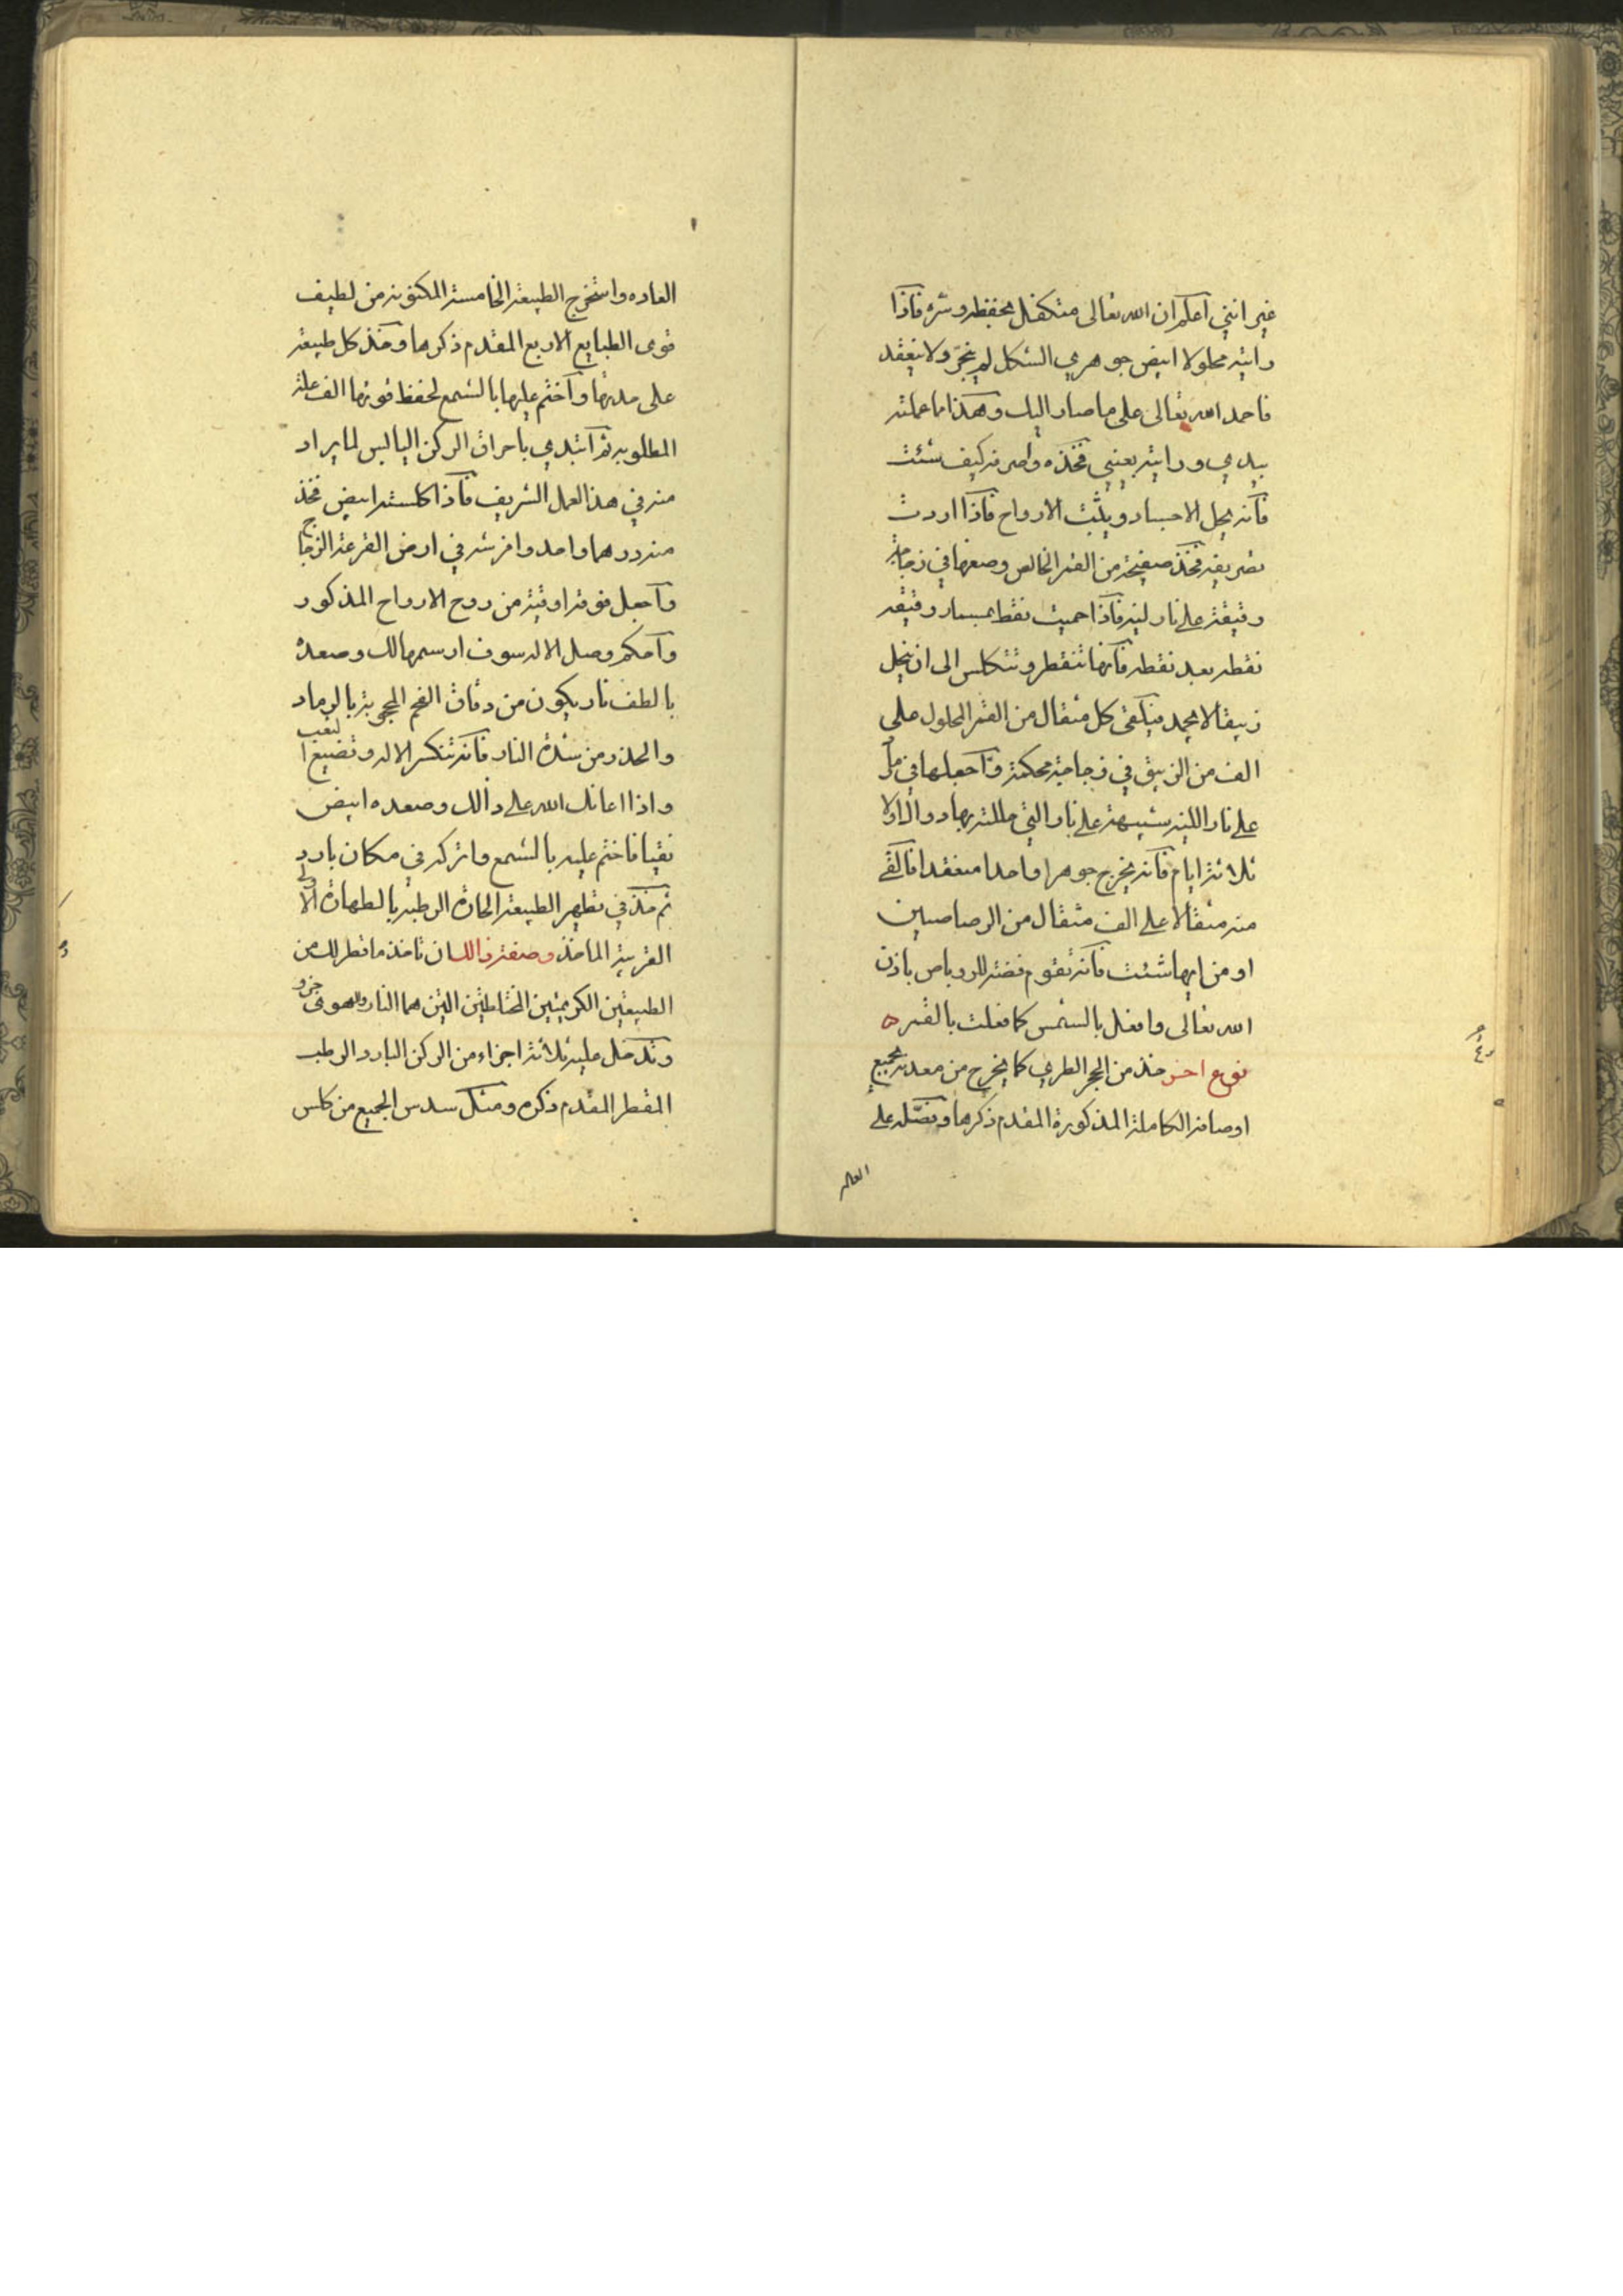 غير انني اعلم ان الله تعالى متكفل بحفظه وستره فاذا
رايته محلولا ابيض جوهري الشكل لم يتجر ولا ينعقد
فاحمد الله تعالى على ما صار اليك وهكذا ما عملته
بيدي ورايته بعيني فخذه واصرفه كيف شئت
فانه يحل الاجساد ويثبت الارواح فاذا اردت
تصريفه فخذ صفيحة من القمر الخالص وضعها في زجاجة
رقيقة على نار لينه فاذا حميت نقط بمسمار رقيقه
نقطه بعد نقطه فانها تتقطر وتتكلس الى ان ينحل
زيبقا لا يجمد فيلقى كل مثقال من القمر المحلول على
الف من الزيبق في زجاجة محكمة واجعلها في
على نار اللينه شبيهة على نار التي حللته بها
ثلاثة ايام فانه يخرج جوهرا واحدا منعقدا فالقي
منه مثقالا على الف مثقال من الرصاصين
او من ايها شئت فانه تقوم فضة للروباص باذن
الله تعالى وافعل بالشمس كما فعلت بالقمر ه
نوع اخر خذ من الحجر الطري كما يخرج من معدنه بجميع
اوصافه الكاملة المذكورة المقدم ذكرها وفصله على
العاده
العاده واستخرج الطبيعة الخامسة المكنونة من لطيف
قوى الطبايع الاربع المقدم ذكرها وخذ كل طبيعة
على حدتها واختم عليها بالشمع لحفظ قوتها
المطلوبه ثم ابتدي باحراق الركن اليابس لما يراد
منه في هذا العمل الشريف فاذا كلسته ابيض فخذ
منه درهما واحد وافرشه في ارض القرعة الزجاج
واجعل فوقه اوقية من روح الارواح المذكور
واحكم وصل الاله سوف ارسمها لك وصعده
بالطف نار يكون من دقاق الفحم المحجوبة بالرماد
والحذر من شدة النار فانه تنكسر الاله وتضيع التعب
واذا اعانك الله على ذالك وصعده ابيض
نقيا فاختم عليه بالشمع واتركه في مكان بارد
ثم خذ في تطهير الطبيعة الحارة الرطبه بالطهارة الاولى
القريبة الماخذ وصفة ذالك ان تاخذ ما قطر لك من
الطبيعتين الكريمتين المختلطتين التين هما النار والهوى جزو
وتدخل عليه ثلاثة اجزاء من الركن البارد الرطب
المقطر المقدم ذكره ومثل سدس الجميع من كلس